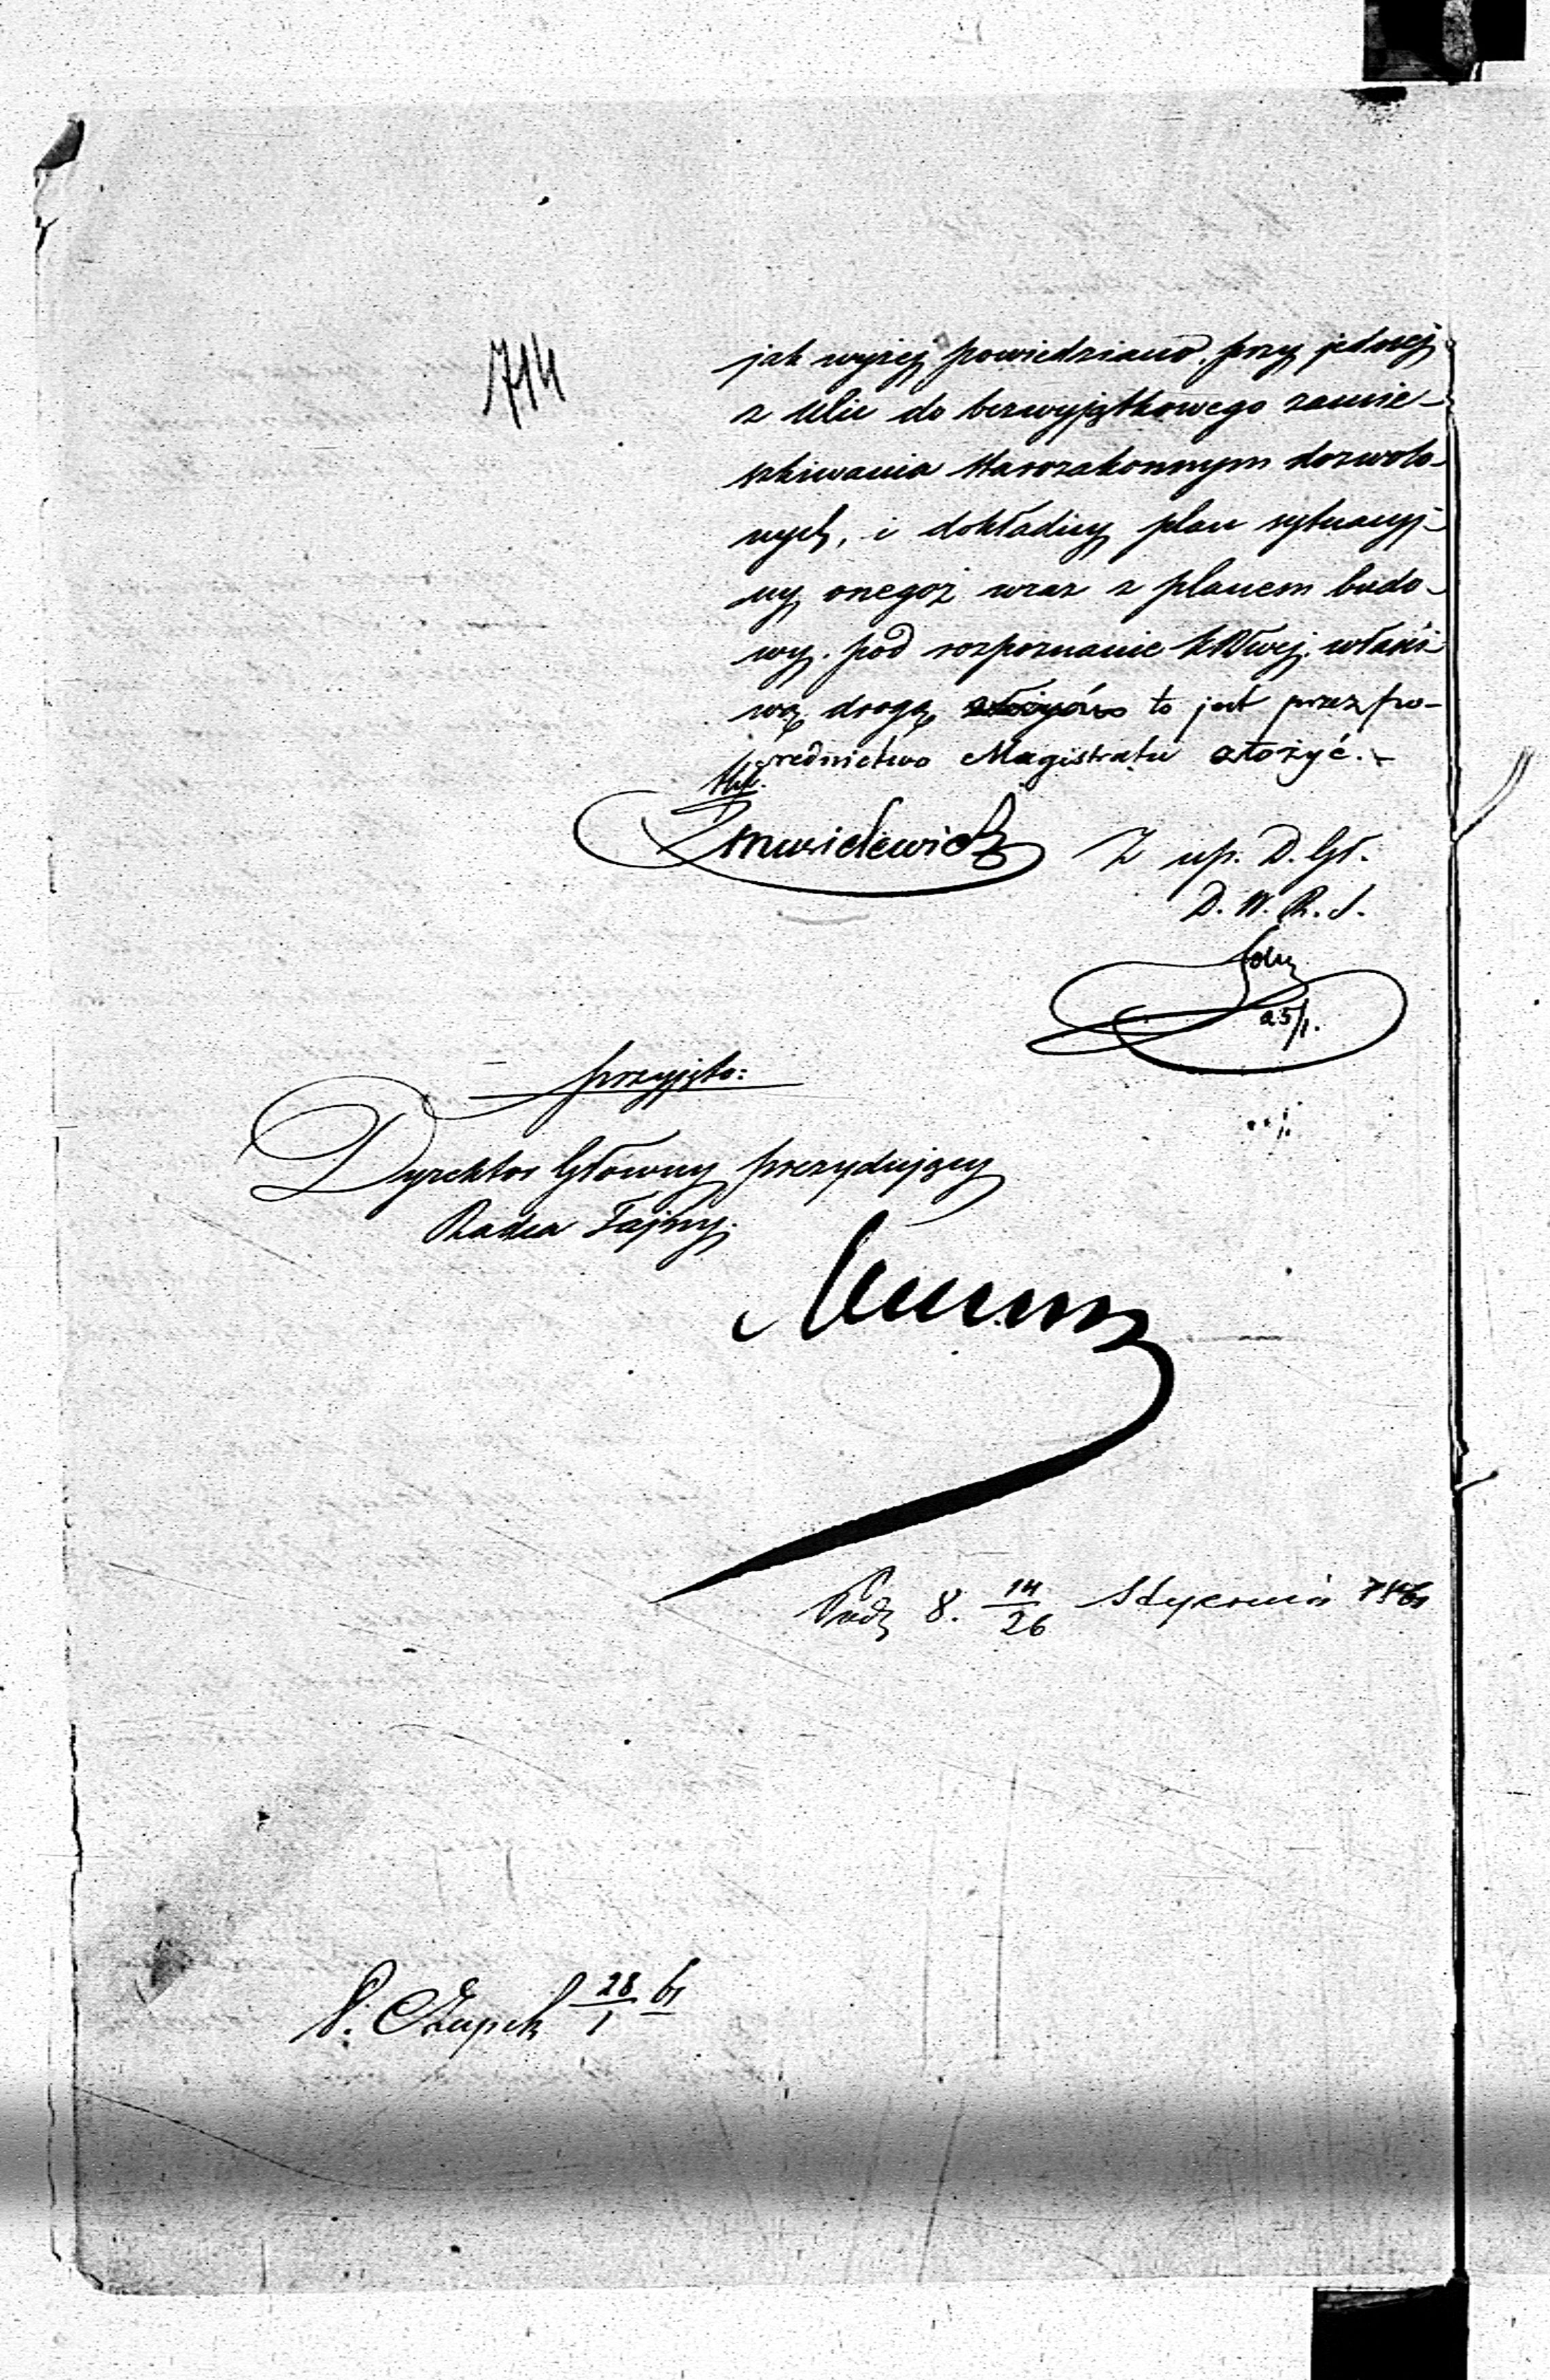 714
jak wyżej powiedziano, przy jednej
z ulic do bezwyjątkowego zamie-
szkiwania starozakonnym dozwolo-
nych, i dokładny plan sytuacyj-
ny onegoż wraz z planem budo-
wy. pod rozpoznanie KRWej. właści
wą drogą to jest przez po-
średnictwo Magistratu złożyć.
Z up. D. Gł.
D. W. R. S.
25/1.
przyjęto:
Dyrektor Główny prezydujący
Radca Tajny.
8. 14/26 Stycznia
28/1 61